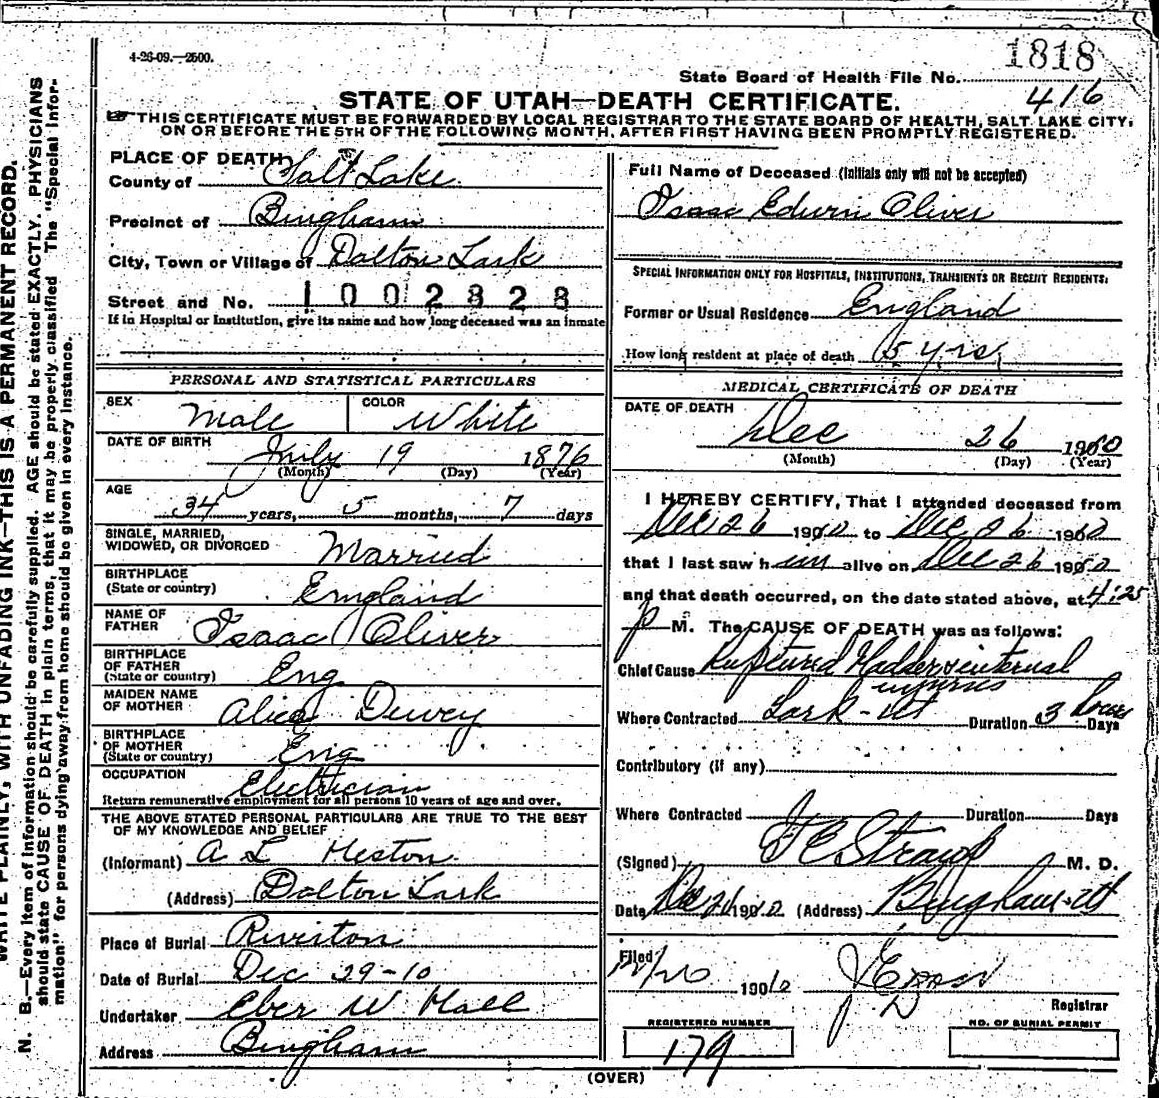 4-26-09.—2500.
1818
State Board of Health File No.
416
STATE OF UTAH—DEATH CERTIFICATE.
THIS CERTIFICATE MUST BE FORWARDED BY LOCAL REGISTRAR TO THE STATE BOARD OF HEALTH, SALT LAKE CITY,
ON OR BEFORE THE 5TH OF THE FOLLOWING MONTH, AFTER FIRST HAVING BEEN PROMPTLY REGISTERED.
WRITE PLAINLY, WITH UNFADING INK—THIS IS A PERMANENT RECORD.
N. B.—Every item of information should be carefully supplied. AGE should be stated EXACTLY. PHYSICIANS
should state CAUSE OF DEATH in plain terms, that it may be properly classified. The "Special Infor-
mation" for persons dying away from home should be given in every instance.
PLACE OF DEATH
County of Salt Lake
Precinct of Bingham
City, Town or Village of Dalton Lark
Street and No. 1002828
If in Hospital or Institution, give its name and how long deceased was an inmate
PERSONAL AND STATISTICAL PARTICULARS
SEX Male COLOR White
DATE OF BIRTH
July 19 1876
(Month) (Day) (Year)
AGE
34 years, 5 months, 7 days
SINGLE, MARRIED,
WIDOWED, OR DIVORCED Married
BIRTHPLACE
(State or country) England
NAME OF
FATHER Isaac Oliver
BIRTHPLACE
OF FATHER
(State or country) Eng
MAIDEN NAME
OF MOTHER Alice Dewey
BIRTHPLACE
OF MOTHER
(State or country) Eng
OCCUPATION Electrician
Return remunerative employment for all persons 10 years of age and over.
THE ABOVE STATED PERSONAL PARTICULARS ARE TRUE TO THE BEST
OF MY KNOWLEDGE AND BELIEF
(Informant) A L Heston
(Address) Dalton Lark
Place of Burial Riverton
Date of Burial Dec 29-10
Undertaker Eber W Hall
Address Bingham
Full Name of Deceased (Initials only will not be accepted)
Isaac Edwin Oliver
SPECIAL INFORMATION ONLY FOR HOSPITALS, INSTITUTIONS, TRANSIENTS OR RECENT RESIDENTS.
Former or Usual Residence England
How long resident at place of death 5 yrs
MEDICAL CERTIFICATE OF DEATH
DATE OF DEATH
Dec 26 1910
(Month) (Day) (Year)
I HEREBY CERTIFY, That I attended deceased from
Dec 26 1910 to Dec 26 1910
that I last saw him alive on Dec 26 1910
and that death occurred, on the date stated above, at 4:25
p M. The CAUSE OF DEATH was as follows:
Chief Cause Ruptured bladder & internal
injuries
Where Contracted Lark-Ut Duration 3 hours Days
Contributory (if any)
Where Contracted Duration Days
(Signed) F E Straup M. D.
Date Dec 26 1910 (Address) Bingham-Ut
Filed
12/26 1910
Registrar
REGISTERED NUMBER
179
NO. OF BURIAL PERMIT
(OVER)